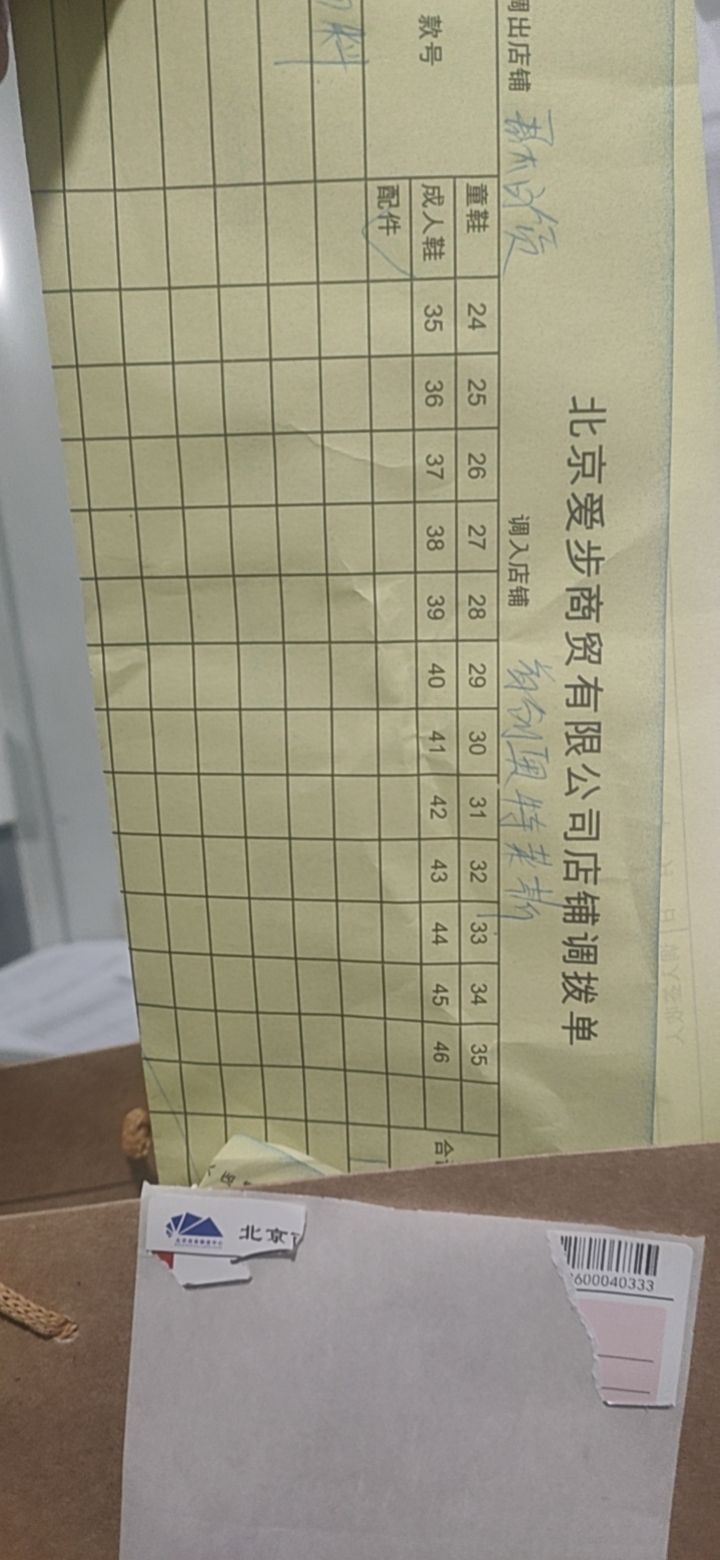 北京爱步商贸有限公司店铺调拨单
调出店铺 调入店铺 首创奥特莱斯
款号 童鞋 24 25 26 27 28 29 30 31 32 33 34 35
成人鞋 35 36 37 38 39 40 41 42 43 44 45 46 合
配件
料
北京
600040333